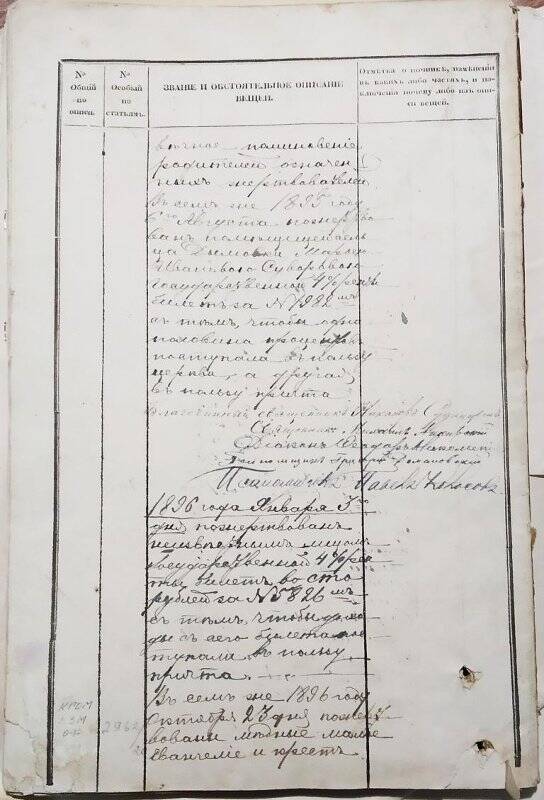 №
Общій
по
описи.
№
Особый
по
статьямъ.
ЗВАНІЕ И ОБСТОЯТЕЛЬНОЕ ОПИСАНІЕ
ВЕЩЕЙ.
Отмѣтка о починкѣ, измѣненіи
въ какихъ либо частяхъ, и
почему либо изъ описи
вещей.
вѣчное поминовеніе
родителей означен
ныхъ жертвователей
Въ семъ же 1895 году
Августа пожертво
ванъ
Марѳою
Ивановою Суворовою
государственной 4% рен
билетъ за № 1982 мъ
съ тѣмъ, чтобы одна
половина процентовъ
поступала въ пользу
церкви, а другая
въ пользу причта
Благочинный священникъ
Священникъ Михаилъ
Діаконъ Ѳеодоръ
Псаломщикъ
Псаломщикъ Павелъ
1896 года Января 3го
дня пожертвованъ
неизвѣстнымъ лицомъ
государственной 4% рен
ты билетъ во сто
рублей за № 5826 мъ
съ тѣмъ, чтобы дохо
ды съ сего билета пос
тупали въ пользу
причта.
Въ семъ же 1896 году
Октября 23 дня пожерт
вованы мѣдные малые
Евангеліе и крестъ
КРОМ